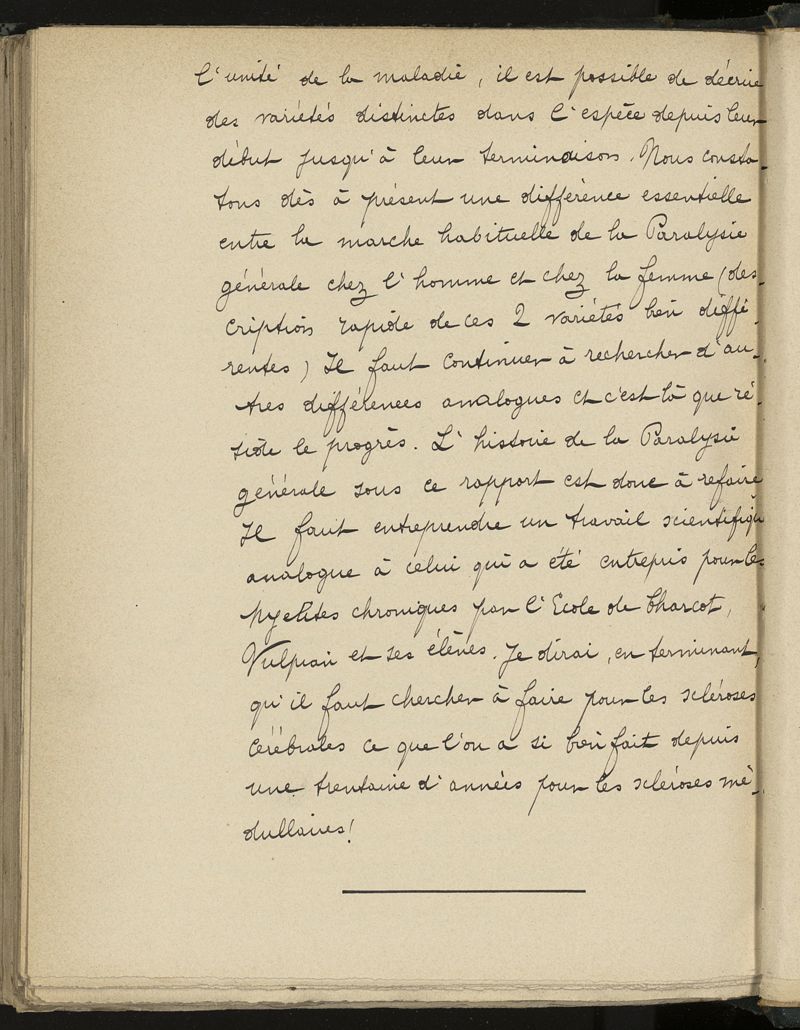 l'unité de la maladie, il est possible de décrire
des variétés distinctes dans l'espèce depuis leur
début jusqu'à leur terminaison. Nous consta-
tons dès à présent une différence essentielle
entre la marche habituelle de la Paralysie
générale chez l'homme et chez la femme (des-
cription rapide de ces 2 variétés bien diffé-
rentes) Il faut continuer à rechercher d'au-
tres différences analogues et c'est là que ré-
side le progrès. L'histoire de la Paralysie
générale sous ce rapport est donc à refaire
Il faut entreprendre un travail scientifique
analogue à celui qui a été entrepris pour les
Myélites chroniques par l'Ecole de Charcot,
Vulpian et ses élèves. Je dirai, en terminant,
qu'il faut chercher à faire pour les scléroses
cérébrales ce que l'on a si bien fait depuis
une trentaine d'années pour les scléroses mé-
dullaires!